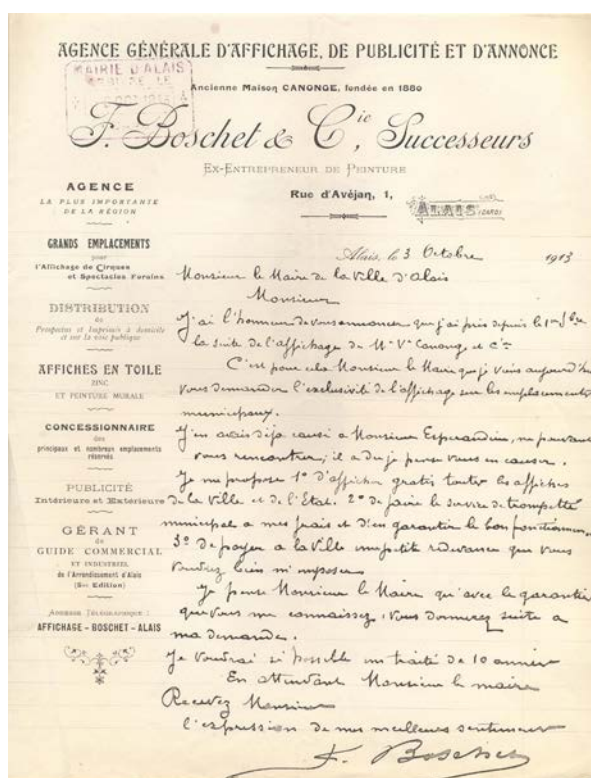 AGENCE GÉNÉRALE D'AFFICHAGE, DE PUBLICITÉ ET D'ANNONCE
MAIRIE D'ALAIS
Ancienne Maison CANONGE, fondée en 1880
F. Boschet & Cie, Successeurs
EX-ENTREPRENEUR DE PEINTURE
Rue d'Avéjan, 1,
ALAIS (GARD)
AGENCE
LA PLUS IMPORTANTE
DE LA RÉGION
GRANDS EMPLACEMENTS
pour
l'Affichage de Cirques
et Spectacles Forains
DISTRIBUTION
de
Prospectus et Imprimés à domicile
et sur la voie publique
AFFICHES EN TOILE
ZINC
ET PEINTURE MURALE
CONCESSIONNAIRE
des
principaux et nombreux emplacements
réservés
PUBLICITÉ
Intérieure et Extérieure
GÉRANT
du
GUIDE COMMERCIAL
ET INDUSTRIEL
de l'Arrondissement d'Alais
(5me Edition)
ADRESSE TÉLÉGRAPHIQUE :
AFFICHAGE-BOSCHET-ALAIS
Alais, le 3 Octobre 1913
Monsieur le Maire de la Ville d'Alais
Monsieur
J'ai l'honneur de vous annoncer que j'ai pris depuis le 1er
la suite de l'affichage de Vve Canonge et Cie
C'est pour cela Monsieur le Maire que je viens aujourd'hui
vous demander l'exclusivité de l'affichage sur les emplacements
municipaux.
J'en avais déja causé a Monsieur Esperandieu, ne pouvant
vous rencontrer, il a du je pense vous en causer.
Je me propose 1º d'afficher gratis toutes les affiches
de la Ville et de l'Etat. 2º de faire le service de trompette
municipal a mes frais et d'en garantir le bon fonctionnement
3º de payer a la Ville une petite redevance que vous
voudrez bien m'imposer
Je pense Monsieur le Maire qu'avec la garantie
que vous me connaissez, vous donnerez suite a
ma demande.
Je voudrai si possible un traité de 10 années
En attendant Monsieur le maire
Recevez Monsieur
l'expression de mes meilleurs sentiments
F. Boschet